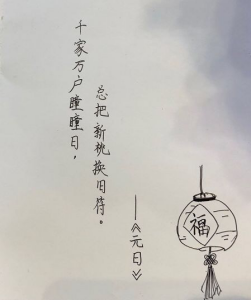 千家万户瞳瞳日，
总把新桃换旧符。
——《元日》
福